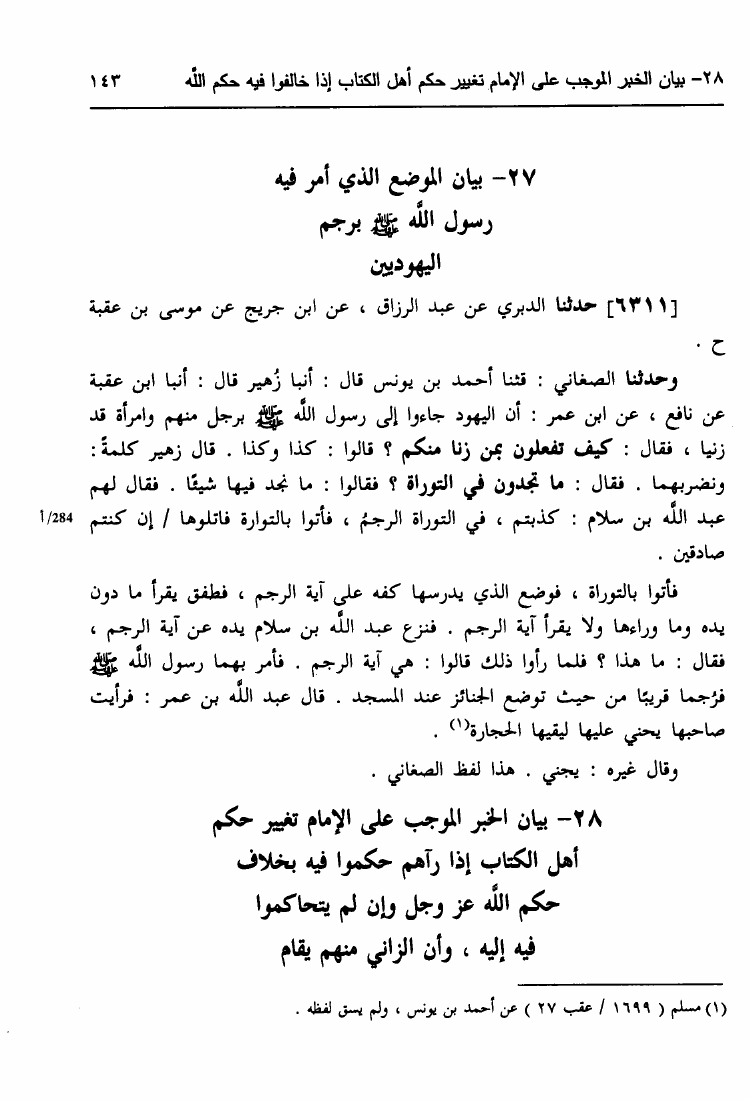 ٢٨- بيان الخبر الموجب على الإمام تغيير حكم أهل الكتاب إذا خالفوا فيه حكم اللَّه ١٤٣
٢٧- بيان الموضع الذي أمر فيه
رسول اللَّه ﷺ برجم
اليهوديين
[٦٣١١] حدثنا الدبري عن عبد الرزاق ، عن ابن جريج عن موسى بن عقبة
ح .
وحدثنا الصغاني : قثنا أحمد بن يونس قال : أنبا زُهير قال : أنبا ابن عقبة
عن نافع ، عن ابن عمر : أن اليهود جاءوا إلى رسول اللَّه ﷺ برجل منهم وامرأة قد
زنيا ، فقال : كيف تفعلون بمن زنا منكم ؟ قالوا : كذا وكذا . قال زهير كلمةً :
ونضربهما . فقال : ما تجدون في التوراة ؟ فقالوا : ما نجد فيها شيئًا . فقال لهم
عبد اللَّه بن سلام : كذبتم ، في التوراة الرجمُ ، فأتوا بالتوارة فاتلوها / إن كنتم 284/أ
صادقين .
فأتوا بالتوراة ، فوضع الذي يدرسها كفه على آية الرجم ، فطفق يقرأ ما دون
يده وما وراءها ولا يقرأ آية الرجم . فنزع عبد اللَّه بن سلام يده عن آية الرجم ،
فقال : ما هذا ؟ فلما رأوا ذلك قالوا : هي آية الرجم . فأمر بهما رسول اللَّه ﷺ
فرُجما قريبًا من حيث توضع الجنائز عند المسجد . قال عبد اللَّه بن عمر : فرأيت
صاحبها يحني عليها ليقيها الحجارة(١) .
وقال غيره : يجني . هذا لفظ الصغاني .
٢٨- بيان الخبر الموجب على الإمام تغيير حكم
أهل الكتاب إذا رآهم حكموا فيه بخلاف
حكم اللَّه عز وجل وإن لم يتحاكموا
فيه إليه ، وأن الزاني منهم يقام
(١) مسلم ( ١٦٩٩ / عقب ٢٧ ) عن أحمد بن يونس ، ولم يسق لفظه .